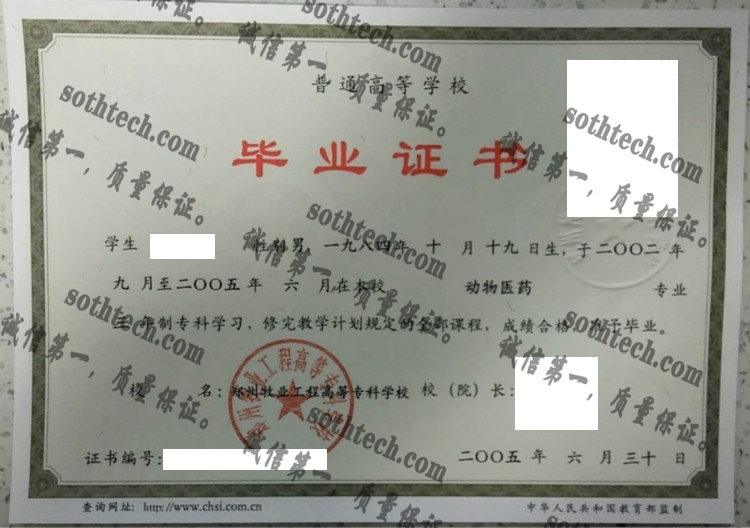 普通高等学校
毕业证书
学生 性别男，一九八四年 十 月 十九 日生，于二〇〇二 年
九 月至二〇〇五 年 六 月在本校 动物医药 专业
三 年制专科学习，修完教学计划规定的全部课程，成绩合格，准予毕业。
校 名：郑州牧业工程高等专科学校 校（院）长：
证书编号： 二〇〇五 年 六 月 三十 日
查询网址：http://www.chsi.com.cn 中华人民共和国教育部监制
郑州牧业工程高等专科学校
sothtech.com
诚信第一，质量保证。
sothtech.com
诚信第一，质量保证。
sothtech.com
诚信第一，质量保证。
sothtech.com
诚信第一，质量保证。
sothtech.com
诚信第一，质量保证。
sothtech.com
诚信第一，质量保证。
sothtech.com
诚信第一，质量保证。
sothtech.com
诚信第一，质量保证。